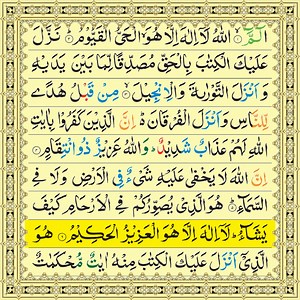 الٓمَّٓ ۙ اللّٰهُ لَاۤ اِلٰهَ اِلَّا هُوَ الْحَیُّ الْقَیُّوْمُ ؕ نَزَّلَ
عَلَیْكَ الْكِتٰبَ بِالْحَقِّ مُصَدِّقًا لِّمَا بَیْنَ یَدَیْهِ
وَ اَنْزَلَ التَّوْرٰىةَ وَ الْاِنْجِیْلَ ۙ مِنْ قَبْلُ هُدًی
لِّلنَّاسِ وَ اَنْزَلَ الْفُرْقَانَ ؕ اِنَّ الَّذِیْنَ كَفَرُوْا بِاٰیٰتِ
اللّٰهِ لَهُمْ عَذَابٌ شَدِیْدٌ ؕ وَ اللّٰهُ عَزِیْزٌ ذُو انْتِقَامٍ ؕ
اِنَّ اللّٰهَ لَا یَخْفٰی عَلَیْهِ شَیْءٌ فِی الْاَرْضِ وَ لَا فِی
السَّمَآءِ ؕ هُوَ الَّذِیْ یُصَوِّرُكُمْ فِی الْاَرْحَامِ كَیْفَ
یَشَآءُ ؕ لَاۤ اِلٰهَ اِلَّا هُوَ الْعَزِیْزُ الْحَكِیْمُ ؕ هُوَ
الَّذِیْۤ اَنْزَلَ عَلَیْكَ الْكِتٰبَ مِنْهُ اٰیٰتٌ مُّحْكَمٰتٌ